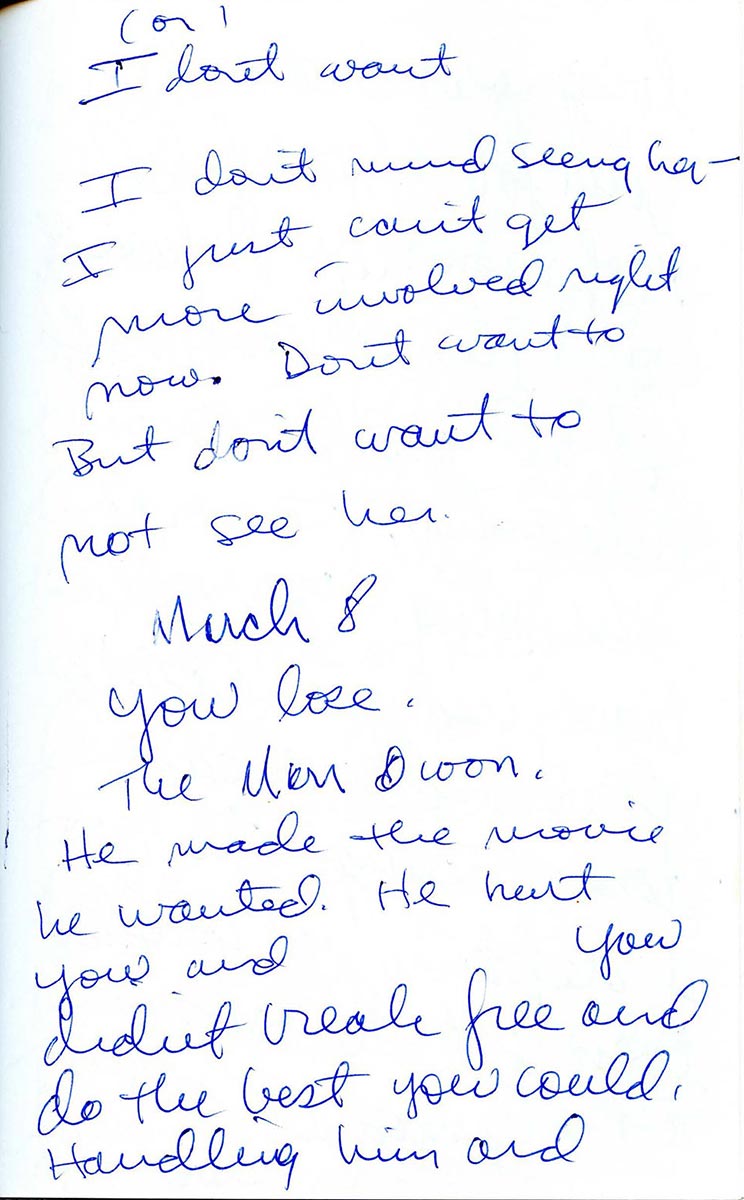 (or)
I don't want
I don't mind seeing her—
I just can't get
more involved right
now. Don't want to
But don't want to
not see her.
March 8
You lose.
The Man won.
He made the movie
he wanted. He hurt
you and you
didn't break free and
do the best you could.
Handling him and